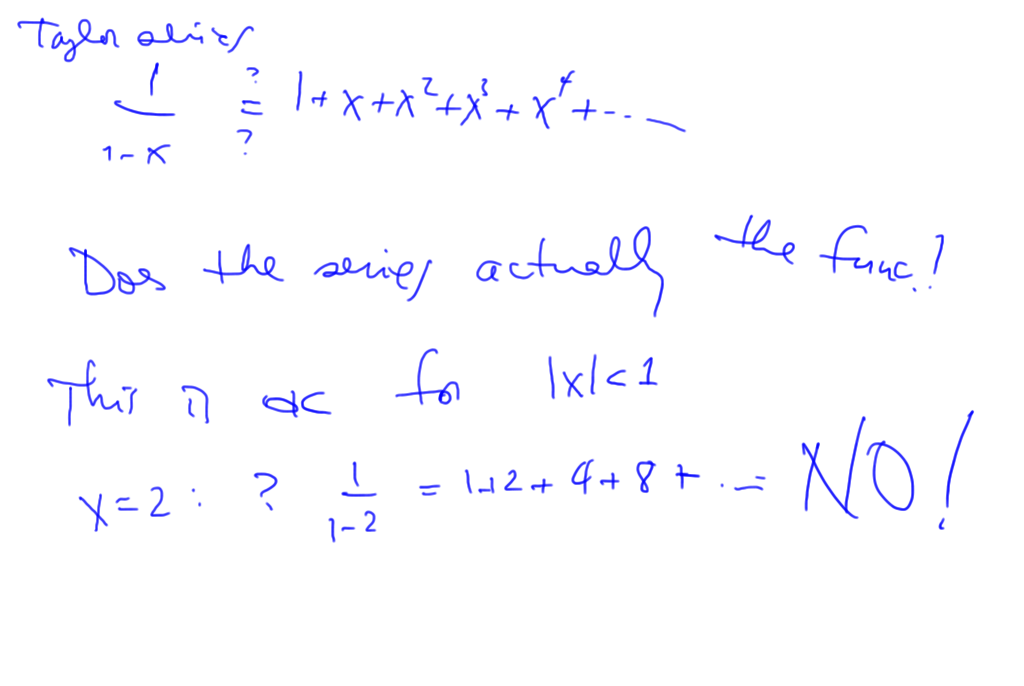 Taylor series
1/(1-x) =?? 1+x+x²+x³+x⁴+...
Does the series actually the func?
This is ok for |x|<1
x=2: ? 1/(1-2) = 1+2+4+8+..= NO!